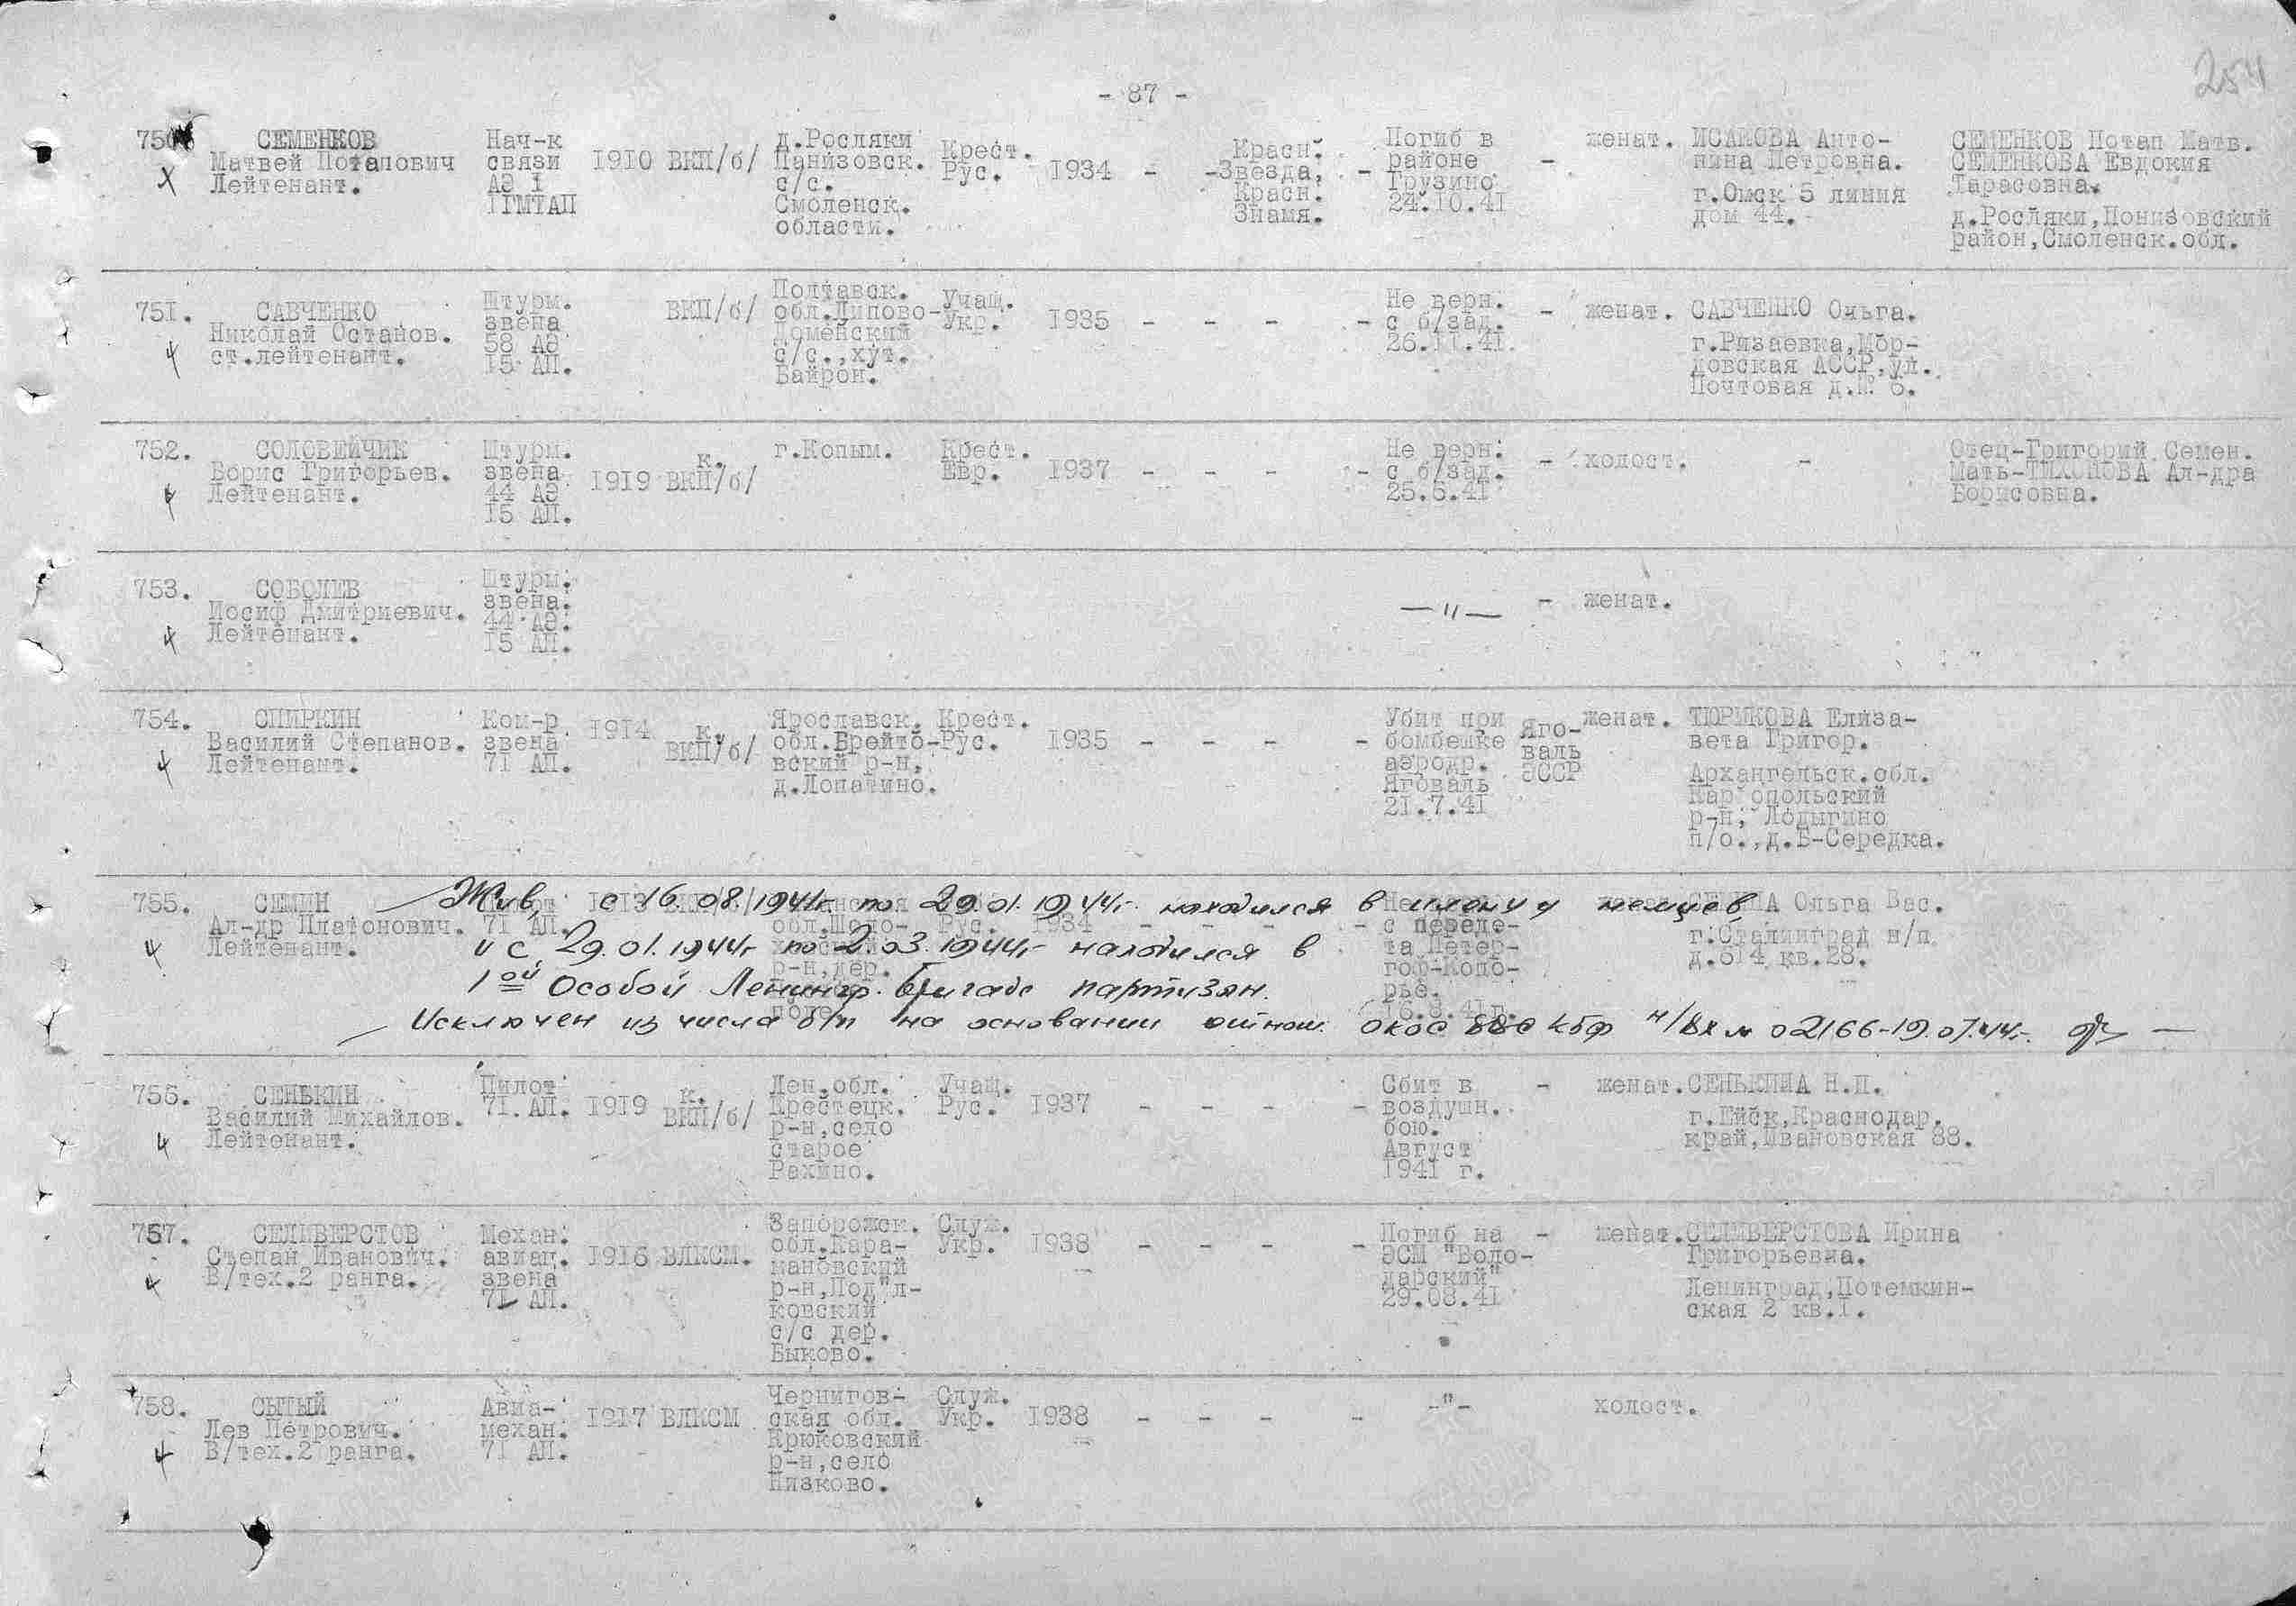 254
- 87 -
750. СЕМЕНКОВ
Матвей Потапович
Лейтенант.
Нач-к
связи
АЭ I
IГМТАП
1910 ВКП/б/
д.Росляки
Панизовск.
с/с.
Смоленск.
области.
Крест.
Рус.
1934 - -
Красн.
Звезда,
Красн.
Знамя.
-
Погиб в
районе
Грузино
24.10.41
-
женат.
ИСАКОВА Анто-
нина Петровна.
г.Омск 5 линия
дом 44.
СЕМЕНКОВ Потап Матв.
СЕМЕНКОВА Евдокия
Тарасовна.
д.Росляки,Понизовский
район,Смоленск.обл.
751. САВЧЕНКО
Николай Остапов.
ст.лейтенант.
Штурм.
звена
58 АЭ
15 АП.
ВКП/б/
Полтавск.
обл.Липово-
Доменский
с/с.,хут.
Байрон.
Учащ.
Укр.
1935 - - - -
Не верн.
с б/зад.
26.11.41.
- женат.
САВЧЕНКО Ольга.
г.Рузаевка,Мор-
довская АССР,ул.
Почтовая д.№ 6.
752. СОЛОВЕЙЧИК
Борис Григорьев.
Лейтенант.
Штурм.
звена
44 АЭ
15 АП.
1919
к.
ВКП/б/
г.Копым.
Крест.
Евр.
1937 - - - -
Не верн.
с б/зад.
25.6.41
- холост. -
Отец-Григорий Семен.
Мать- Ал-дра
Борисовна.
753. СОБОЛЕВ
Иосиф Дмитриевич.
Лейтенант.
Штурм.
звена.
44 АЭ.
15 АП.
—"— - женат.
754. СПИРКИН
Василий Степанов.
Лейтенант.
Ком-р
звена
71 АП.
1914
к.
ВКП/б/
Ярославск.
обл.Брейто-
вский р-н,
д.Лопатино.
Крест.
Рус.
1935 - - - -
Убит при
бомбежке
аэродр.
Яговаль
21.7.41
Яго-
валь
ЭССР
женат.
ТЮРИКОВА Елиза-
вета Григор.
Архангельск.обл.
Кар опольский
р-н, Лодыгино
п/о.,д.Б-Середка.
755. СЕМИН
Ал-др Платонович.
Лейтенант.
71 АП.
1913
обл.Шоло-
р-н,дер.
Рус.
1934 - - - -
с переле-
та Петер-
гоф-Копо-
рье.
16.8.41г.
Ольга Вас.
г.Сталинград н/п
д.614 кв.28.
Жив, с 16.08.1941г. по 29.01.1944г. находился в плену у немцев,
и с 29.01.1944г. по 2.03.1944г. находился в
1ой Особой Ленингр. бригаде партизан.
Исключен из числа б/п на основании отнош. ОКОС ВВС КБФ н/вх № 02166-19.07.44г.
756. СЕНЬКИН
Василий Михайлов.
Лейтенант.
Пилот
71. АП.
1919
к.
ВКП/б/
Лен.обл.
Крестецк.
р-н,село
старое
Рахино.
Учащ.
Рус.
1937 - - - -
Сбит в
воздушн.
бою.
Август
1941 г.
- женат.
СЕНЬКИНА Н.П.
г.Ейск,Краснодар.
край,Ивановская 88.
757. СЕЛИВЕРСТОВ
Степан Иванович.
В/тех.2 ранга.
Механ.
авиац.
звена
71 АП.
1916 ВЛКСМ.
Запорожск.
обл.Кара-
мановский
р-н,Под"л-
ковский
с/с дер.
Быково.
Служ.
Укр.
1938 - - - -
Погиб на
ЭСМ "Воло-
дарский"
29.08.41
- женат.
СЕЛИВЕРСТОВА Ирина
Григорьевна.
Ленинград,Потемкин-
ская 2 кв.1.
758. СЫТЫЙ
Лев Петрович.
В/тех.2 ранга.
Авиа-
механ.
71 АП.
1917 ВЛКСМ
Чернигов-
ская обл.
Крюковский
р-н,село
Низково.
Служ.
Укр.
1938 - - - -
-"-
холост.